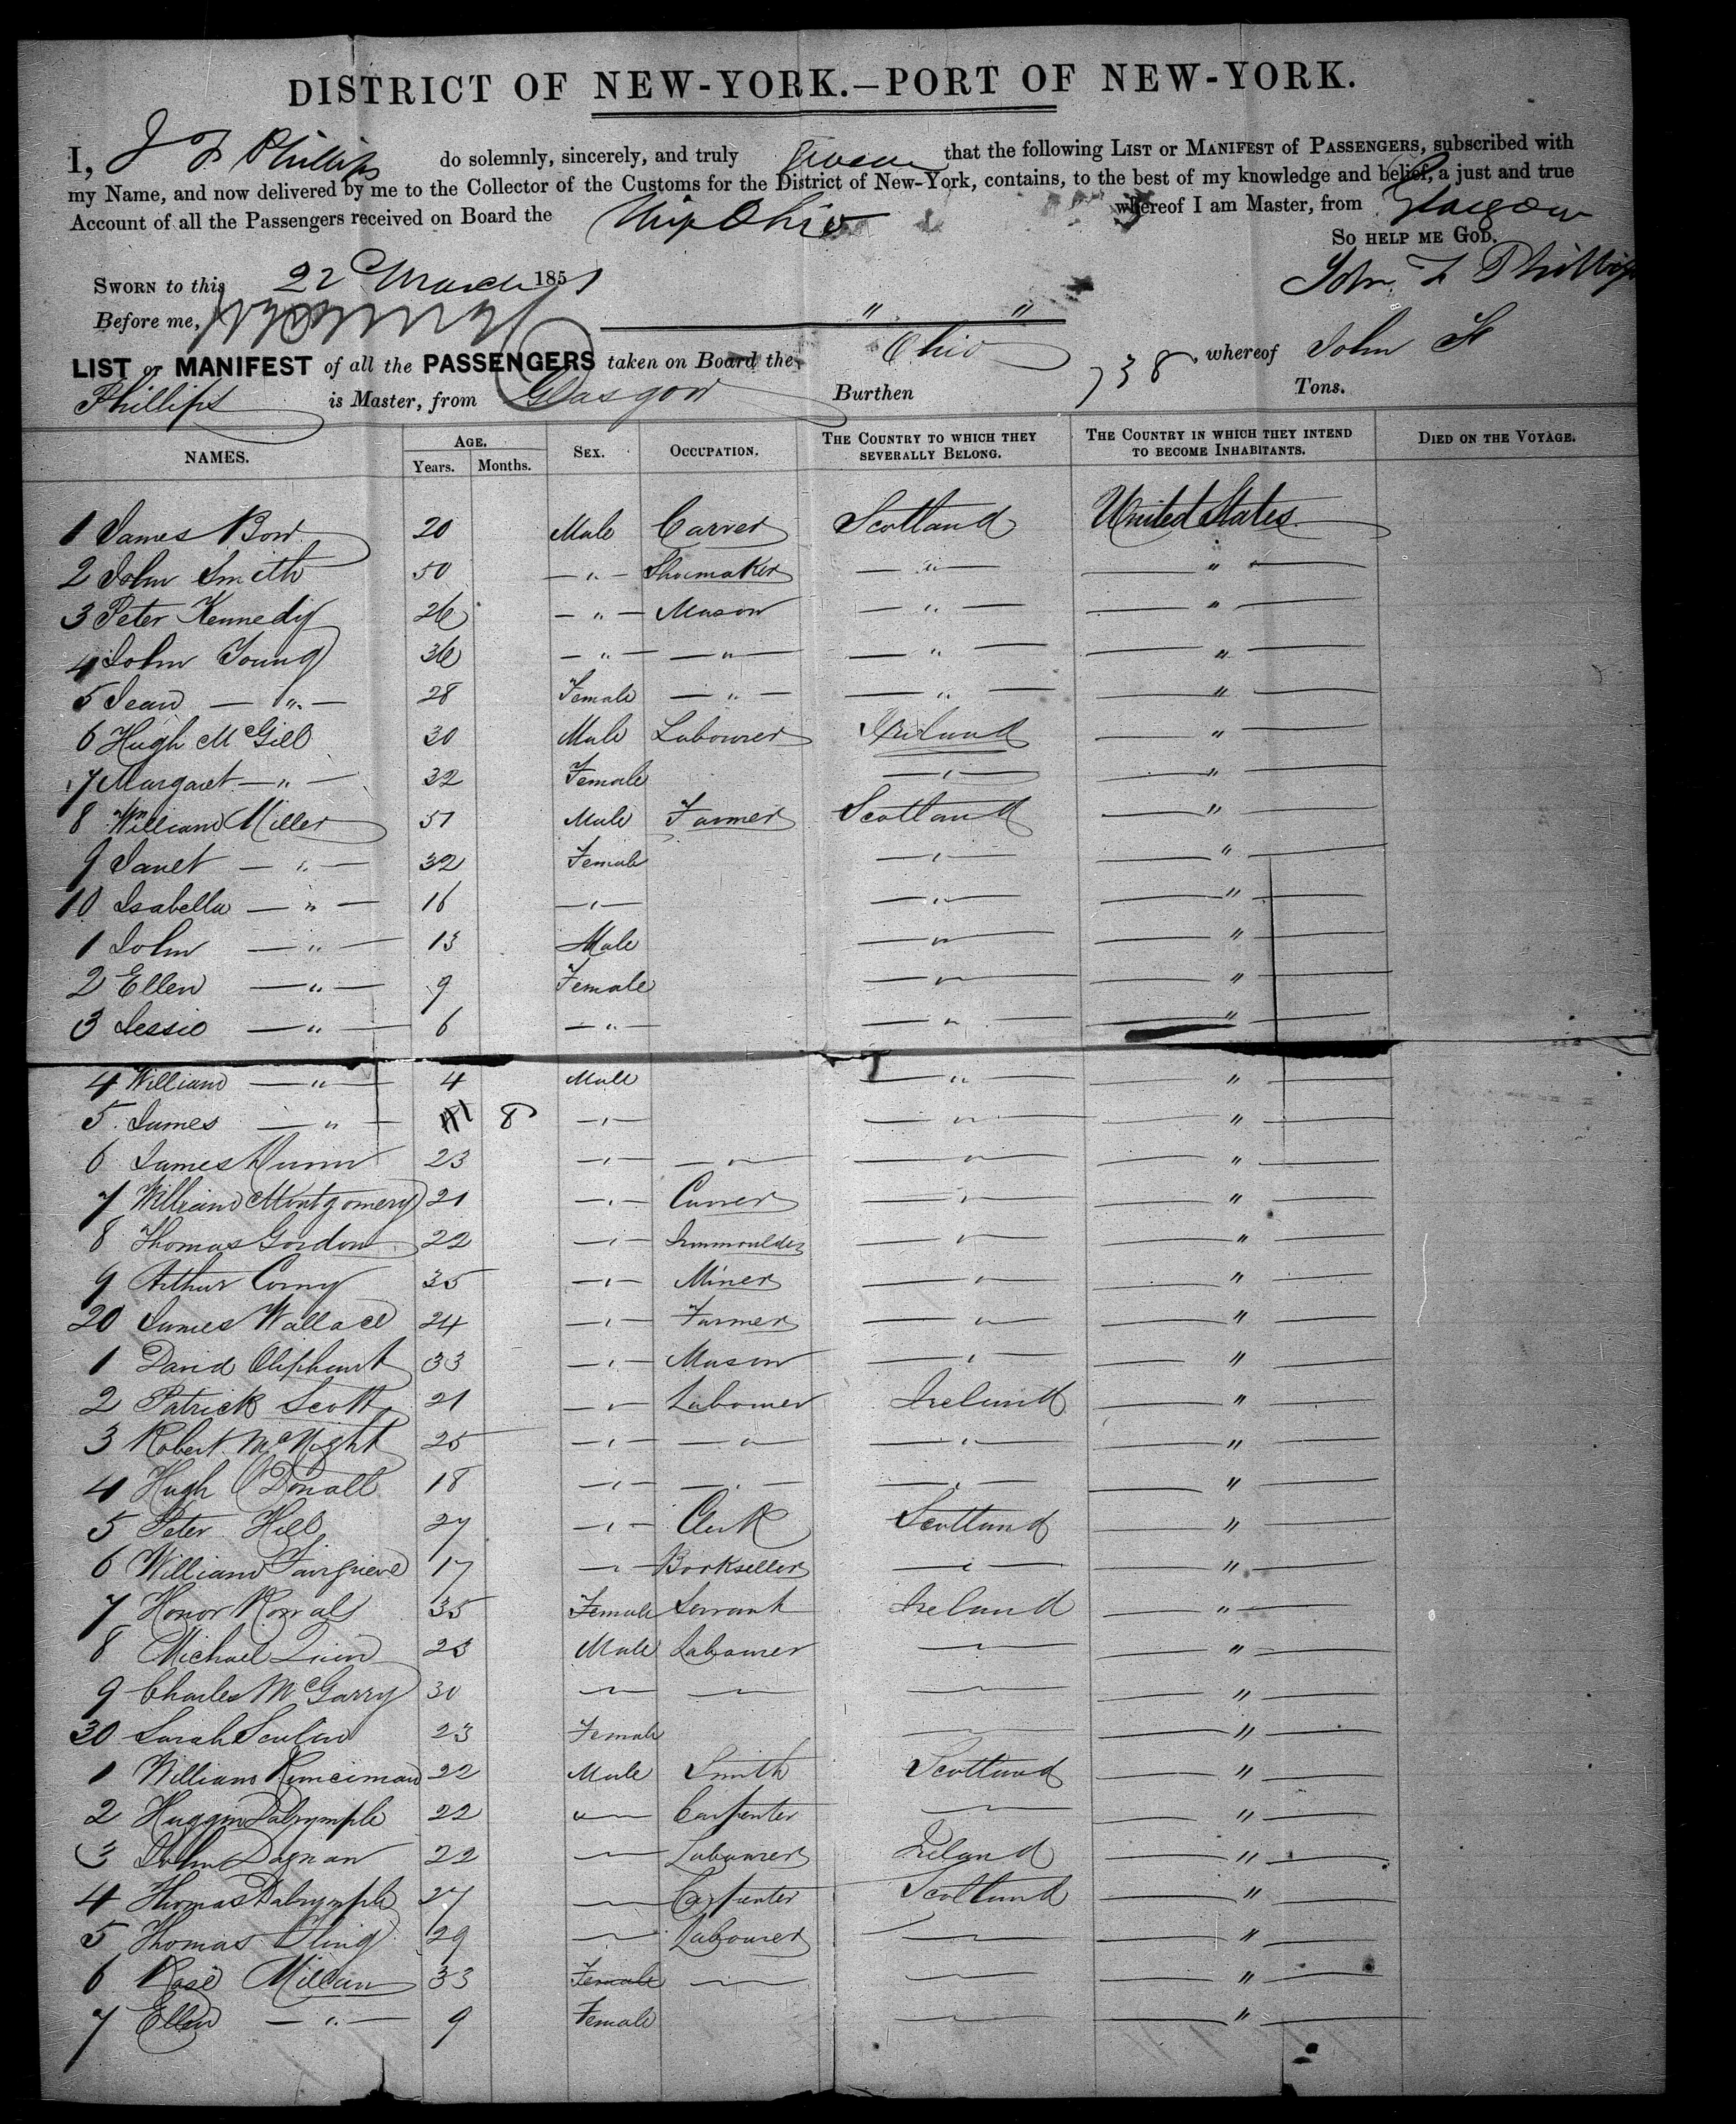 DISTRICT OF NEW-YORK.—PORT OF NEW-YORK.
I, J F Phillips do solemnly, sincerely, and truly swear that the following LIST OR MANIFEST OF PASSENGERS, subscribed with
my Name, and now delivered by me to the Collector of the Customs for the District of New-York, contains, to the best of my knowledge and belief, a just and true
Account of all the Passengers received on Board the Ship Ohio whereof I am Master, from Glasgow
SO HELP ME GOD.
SWORN to this 22 March 1851 John F Phillips
Before me, " "
LIST or MANIFEST of all the PASSENGERS taken on Board the Ohio whereof John F
Phillips is Master, from Glasgow Burthen 738 Tons.
NAMES. AGE. Years. Months. SEX. OCCUPATION. THE COUNTRY TO WHICH THEY SEVERALLY BELONG. THE COUNTRY IN WHICH THEY INTEND TO BECOME INHABITANTS. DIED ON THE VOYAGE.
1 James Bow 20 Male Carver Scotland United States
2 John Smith 50 — " — Shoemaker — " — — " —
3 Peter Kennedy 26 — " — Mason — " — — " —
4 John Young 36 — " — — " — — " — — " —
5 Jean — " — 28 Female — " — — " — — " —
6 Hugh McGill 30 Male Labourer Ireland — " —
7 Margaret — " — 32 Female — " — — " —
8 William Miller 51 Male Farmer Scotland — " —
9 Janet — " — 32 Female — " — — " —
10 Isabella — " — 16 — " — — " — — " —
1 John — " — 13 Male — " — — " —
2 Ellen — " — 9 Female — " — — " —
3 Jessie — " — 6 — " — — " — — " —
4 William — " — 4 Male — " — — " —
5 James — " — 8 — " — — " — — " —
6 James 23 — " — — " — — " — — " —
7 William Montgomery 21 — " — — " — — " —
8 Thomas Gordon 22 — " — Ironmoulder — " — — " —
9 Arthur 35 — " — Miner — " — — " —
20 James Wallace 24 — " — Farmer — " — — " —
1 David Oliphant 33 — " — Mason — " — — " —
2 Patrick Scott 21 — " — Labourer Ireland — " —
3 Robert McNight 25 — " — — " — — " — — " —
4 Hugh O'Donall 18 — " — — " — — " — — " —
5 Peter Hill 27 — " — Clerk Scotland — " —
6 William Fairgrieve 17 — " — Bookseller — " — — " —
7 Honor 35 Female Servant Ireland — " —
8 Michael Quin 23 Male Labourer — " — — " —
9 Charles McGarry 30 — " — — " — — " — — " —
30 Sarah 23 Female — " — — " —
1 William Runciman 22 Male Smith Scotland — " —
2 Dalrymple 22 — " — Carpenter — " — — " —
3 John Dagnan 22 — " — Labourer Ireland — " —
4 Thomas Dalrymple 27 — " — Carpenter Scotland — " —
5 Thomas 29 — " — Labourer — " — — " —
6 Rose 33 Female — " — — " — — " —
7 Ellen — " — 9 Female — " — — " —